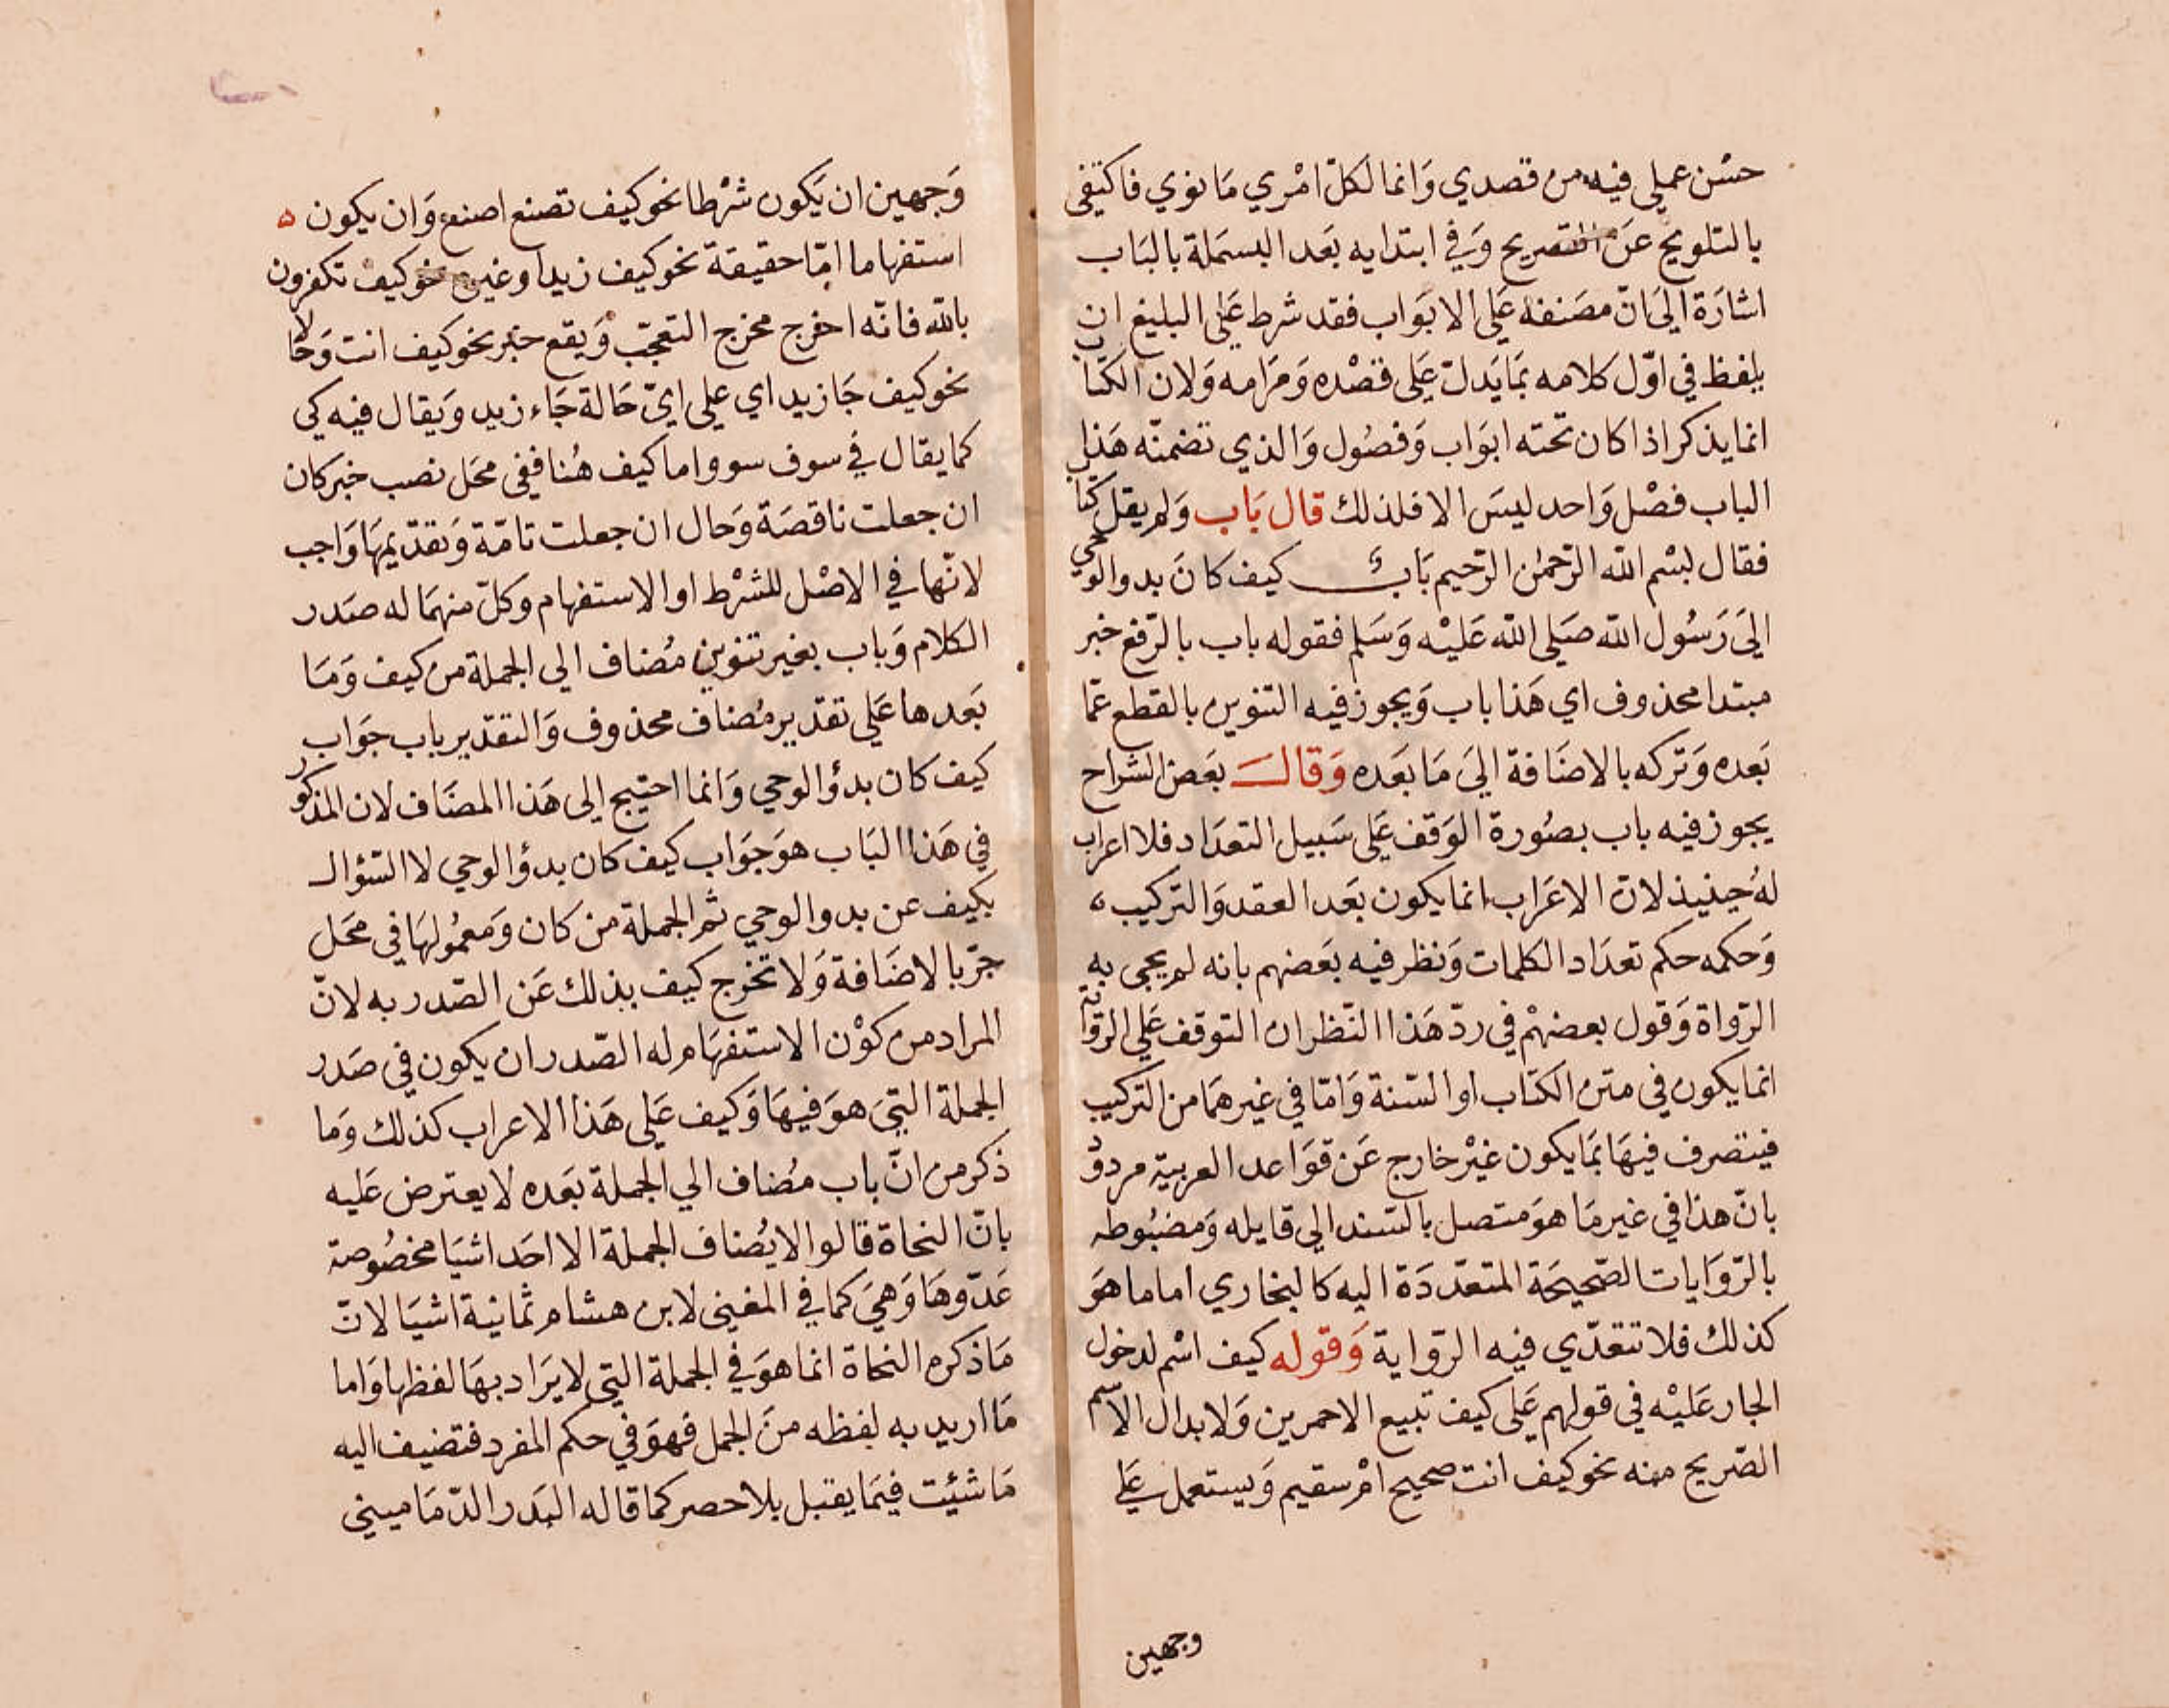 حسْن عملي فيه من قصدي وَانما لكلّ امْري مَا نوي فاكتفى
بالتلويح عَن التصريح وَفي ابتدايه بَعَد البسمَلة بالبَاب
اشارَة الىَ انّ مصَنفهُ عَلَى الابوَاب فقد شرط عَلَى البليغ ان
يلفظ في اوّل كلامه بمَا يَدلّ عَلى قصْده وَمَرَامه وَلان الكتاب
انما يذكر اذا كان تحته ابوَاب وَفصُول وَالذي تضمنّه هَذا
الباب فصْل وَاحد ليسَ الا فلذلك قال بَاب وَلم يقل كتاب
فقال بسْم الله الرّحمٰن الرّحيم بَابُ كيف كانَ بدو الوحي
الىَ رَسُول الله صَلى الله عَليْه وَسَلم فقوله باب بالرّفع خبر
مبتدا محذوف اي هَذا باب وَيجوز فيه التنوين بالقطع عمّا
بَعَده وَتركه بالاضَافة اليَ مَا بَعَده وَقالــ بعَض الشراح
يجوز فيه باب بصُورة الوَقف عَلى سَبيل التعدَاد فلا اعراب
لهُ حينيذ لانّ الاعَراب انما يكون بَعَد العقد وَالتركيب
وَحكمه حكم تعدَاد الكلمات وَنظر فيه بَعَضهم بانه لم يجى به
الرّواة وَقول بعضهمْ في ردّ هَذا النّظر ان التوقف عَلى الرّواية
انما يكون في متن الكتاب او السّنة وَامّا في غيرهمَا من التركيب
فيتصرف فيهَا بمَا يكون غيْر خارج عَن قوَاعد العربية مردود
بانّ هذا في غير مَا هوَ متصل بالسّند الي قايله وَمضبُوطه
بالرّوَايات الصّحيحَة المتعدّدَة اليه كالبخاري اما ما هوَ
كذلك فلا تتعدّي فيه الرّواية وَقوله كيف اسْم لدخول
الجار عَليْه في قولهم عَلى كيف تبيع الاحمرين وَلابدال الاسم
الصّريح منه نحو كيف انت صحيح امْ سقيم وَيستعمل عَلي
وجهين
وَجهين ان يَكون شرْطا نحو كيف تصنع اصنع وَان يكون
استفهاما امّا حقيقة نحو كيف زيد او غيره نحو كيف تكفرون
بالله فانّه اخرج مخرج التعجّب وَيقع خبر نحو كيف انت وَحَالا
نحو كيف جَا زيد اي علي ايّ حَالة جَاء زيد وَيقال فيه كي
كما يقال في سوف سو واما كيف هُنا ففي محَل نصب خبر كان
ان جعلت ناقصَة وَحال ان جعلت تامّة وَتقدّيمهَا وَاجب
لانّها في الاصْل للشرْط او الاستفهام وكلّ منهمَا له صَدر
الكلام وَباب بغير تنوين مُضاف الي الجملة من كيف وَمَا
بَعَدها عَلي تقدّير مُضاف محذوف وَالتقدّير باب جوَاب
كيف كان بدؤ الوحي وَانما احتيج الي هَذا المضَاف لان المذكور
في هَذا البَاب هوَ جوَاب كيف كان بدؤ الوحي لا السّؤال
بكيف عن بدو الوحي ثم الجملة من كان وَمعمُولهَا في محَل
جرّ بالاضَافة وَلا تخرج كيف بذلك عَن الصّدر به لانّ
المراد من كوْن الاستفهَام له الصّدر ان يكون في صَدر
الجملة التيَ هوَ فيهَا وَكيف عَلي هَذا الاعراب كذلك وَما
ذكر من انّ باب مُضاف الي الجملة بعَده لا يعترض عَليه
بانّ النحاة قالوا لا يُضاف الجملة الا احَد اشيَا مخصُوصة
عَدّوهَا وَهيَ كما في المغنى لابن هشام ثمانية اشيَا لانّ
مَا ذكره النحاة انما هوَ في الجملة التي لا يرَاد بهَا لفظها وَاما
مَا اريد به لفظه منَ الجمل فهوَ في حكم المفرد فتضيف اليه
مَا شئيت فيمَا يقبل بلا حصر كما قاله البَدر الدّمَاميني